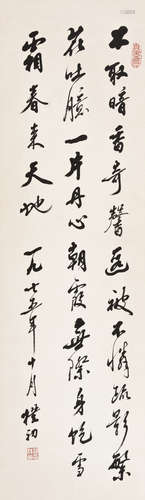 不取暗香奇馨遠被不疏影繁
花吐臆一片丹心朝霞無際身飽雪
霜春来天地 一九七五年十月 樸初